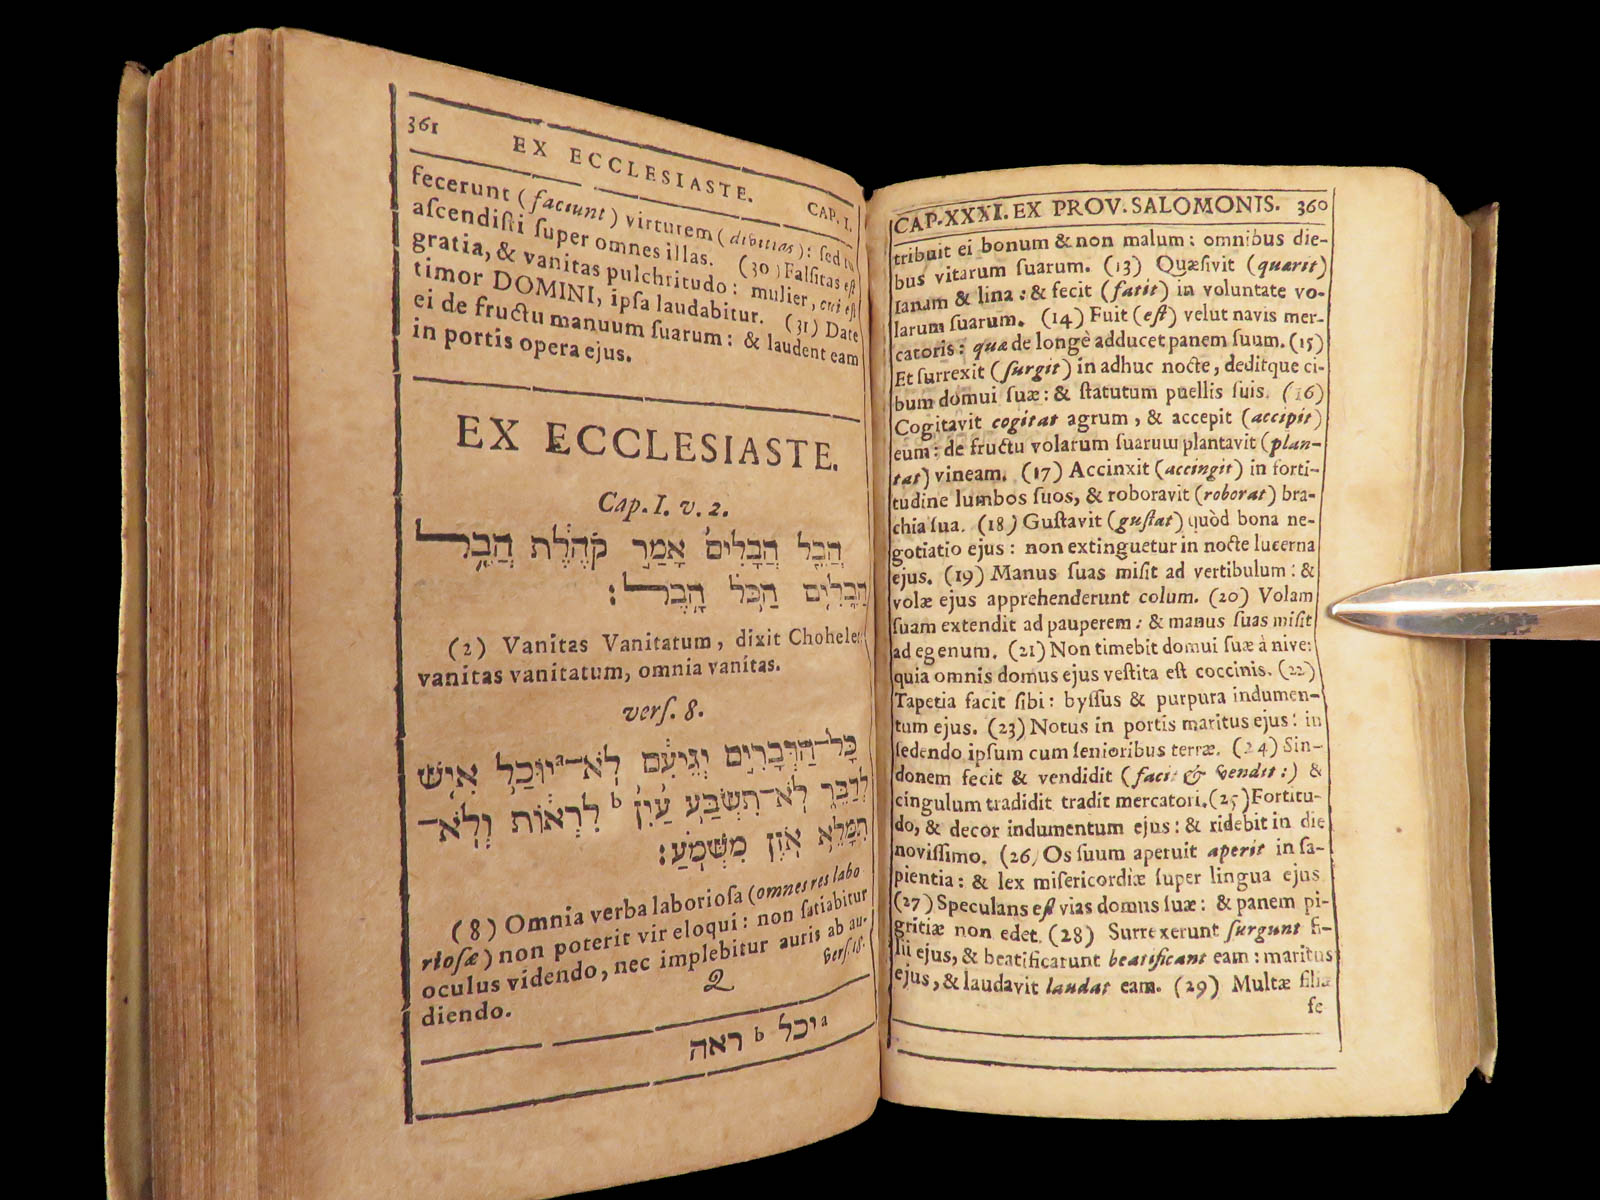 CAP.XXXI. EX PROV. SALOMONIS. 360
tribuit ei bonum & non malum: omnibus die-
bus vitarum ſuarum. (13) Quæſivit (quærit)
lanam & lina: & fecit (facit) in voluntate vo-
larum ſuarum. (14) Fuit (eſt) velut navis mer-
catoris: quæ de longè adducet panem ſuum. (15)
Et ſurrexit (ſurgit) in adhuc nocte, deditque ci-
bum domui ſuæ: & ſtatutum puellis ſuis. (16)
Cogitavit cogitat agrum, & accepit (accipit)
eum: de fructu volarum ſuarum plantavit (plan-
tat) vineam. (17) Accinxit (accingit) in forti-
tudine lumbos ſuos, & roboravit (roborat) bra-
chia ſua. (18) Guſtavit (guſtat) quòd bona ne-
gotiatio ejus: non extinguetur in nocte lucerna
ejus. (19) Manus ſuas miſit ad vertibulum: &
volæ ejus apprehenderunt colum. (20) Volam
ſuam extendit ad pauperem: & manus ſuas miſit
ad egenum. (21) Non timebit domui ſuæ à nive:
quia omnis domus ejus veſtita eſt coccinis. (22)
Tapetia facit ſibi: byſſus & purpura indumen-
tum ejus. (23) Notus in portis maritus ejus: in
ſedendo ipſum cum ſenioribus terræ. (24) Sin-
donem fecit & vendidit (facit & vendit:) &
cingulum tradidit tradit mercatori. (25) Fortitu-
do, & decor indumentum ejus: & ridebit in die
noviſſimo. (26) Os ſuum aperuit aperit in ſa-
pientia: & lex miſericordiæ ſuper lingua ejus
(27) Speculans eſt vias domus ſuæ: & panem pi-
gritiæ non edet. (28) Surrexerunt ſurgunt fi-
lii ejus, & beatificarunt beatificant eam: maritus
ejus, & laudavit laudat eam. (29) Multæ filiæ
fe
361 EX ECCLESIASTE. CAP. I.
fecerunt (faciunt) virtutem (divitias): ſed tu
aſcendiſti ſuper omnes illas. (30) Falſitas eſt
gratia, & vanitas pulchritudo: mulier, cui eſt
timor DOMINI, ipſa laudabitur. (31) Date
ei de fructu manuum ſuarum: & laudent eam
in portis opera ejus.
EX ECCLESIASTE.
Cap. I. v. 2.
הֲבֵ֤ל הֲבָלִים֙ אָמַ֣ר קֹהֶ֔לֶת הֲבֵ֥ל
הֲבָלִ֖ים הַכֹּ֥ל הָֽבֶל׃
(2) Vanitas Vanitatum, dixit Choheleth
vanitas vanitatum, omnia vanitas.
verſ. 8.
כָּל־הַדְּבָרִ֣ים יְגֵעִ֔ים לֹא־ᵃיוּכַ֥ל אִ֖ישׁ
לְדַבֵּ֑ר לֹא־תִשְׂבַּ֥ע עַ֙יִן֙ ᵇ לִרְא֔וֹת וְלֹא־
תִמָּלֵ֥א אֹ֖זֶן מִשְּׁמֹֽעַ׃
(8) Omnia verba laborioſa (omnes res labo
rioſæ) non poterit vir eloqui: non ſatiabitur
oculus videndo, nec implebitur auris ab au-
diendo.
Q verſ. 18.
ᵃ יכל ᵇ ראה